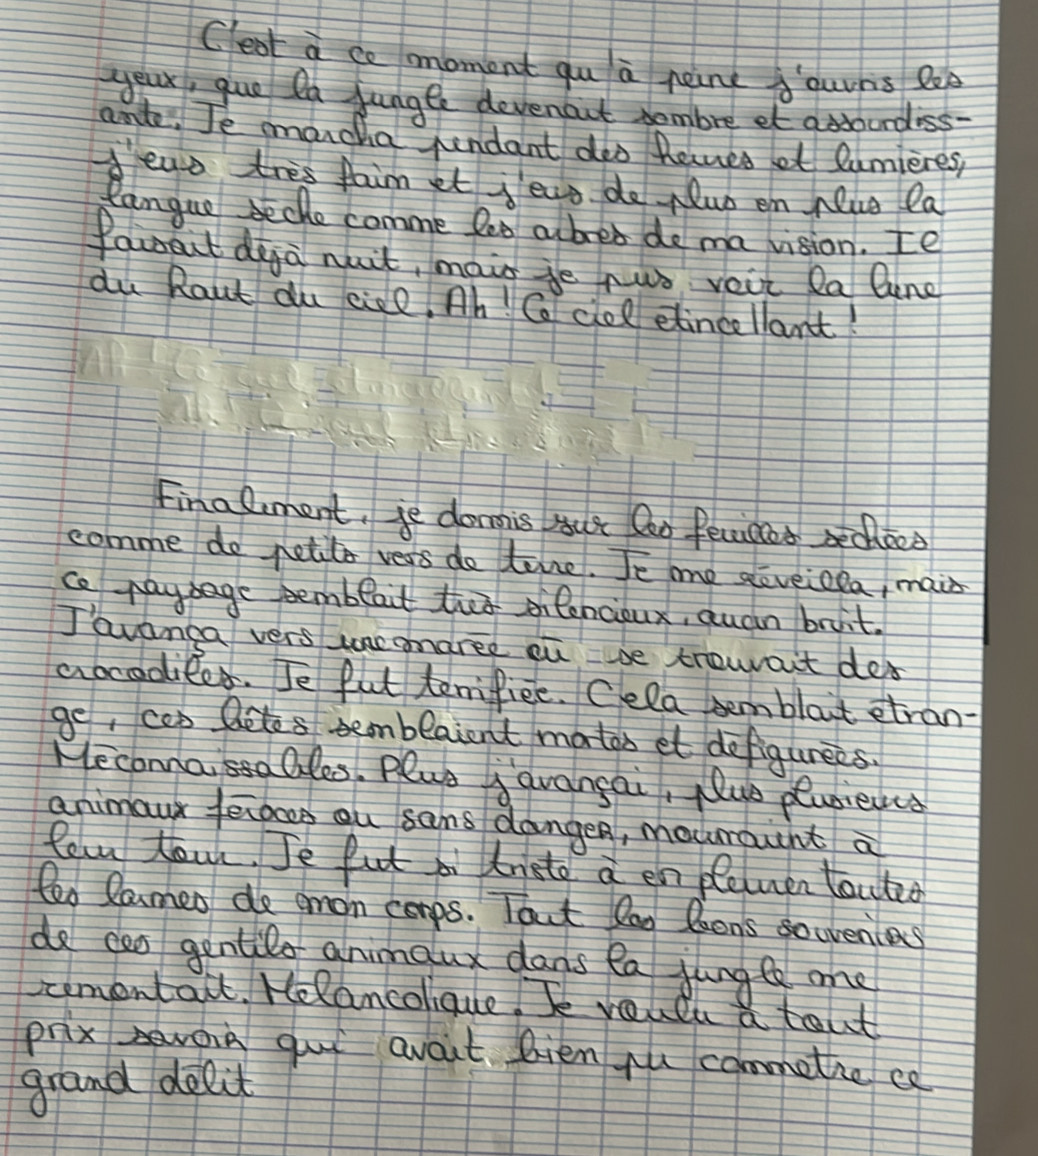 C'est à ce moment qu'à peine j'ouvris les
yeux, que la jungle devenait sombre et assourdiss-
ante. Je marcha pendant des heures et lumières,
j'eus très faim et j'eus de plus en plus la
langue sèche comme les arbres de ma vision. Il
faisait dejà nuit, mais je pus voir la lune
du haut du ciel. Ah! Ce ciel étincellant!
Finalement, je dormis sur les feuilles sechées
comme de petits vers de terre. Je me réveilla, mais
ce paysage semblait très silencieux, aucun bruit.
J'avança vers une marée où se trouvait des
crocodiles. Je fut terrifiée. Cela semblait étran-
ge, ces bêtes semblaient mortes et défigurées.
Méconnaissables. Plus j'avançai, plus plusieurs
animaux féroces ou sans danger, mourraient à
leur tour. Je fut si triste à en pleurer toutes
les larmes de mon corps. Tout les bons souvenirs
de ces gentils animaux dans la jungle me
remontait. Melancolique. Je voulu à tout
prix savoir qui avait bien pu commetre ce
grand délit